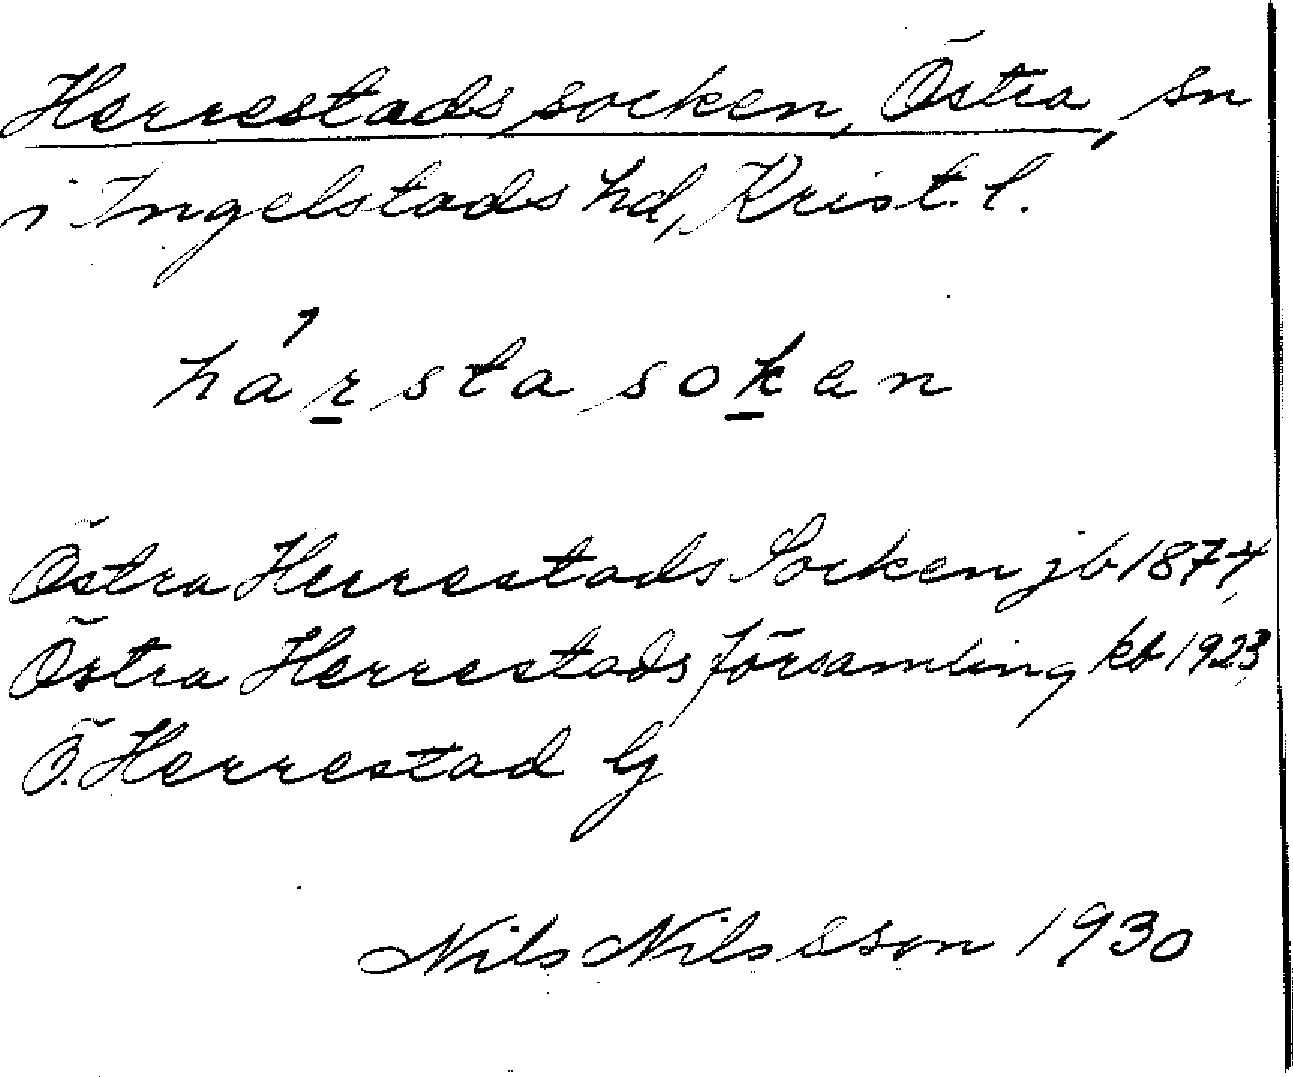 Herrestads socken, Östra, sn
i Ingelstads hd, Krist. l.
hársta soken
Östra Herrestads Socken jb 1874,
Östra Herrestads församling kb 1923,
Ö. Herrestad G
Nils Nilsson 1930